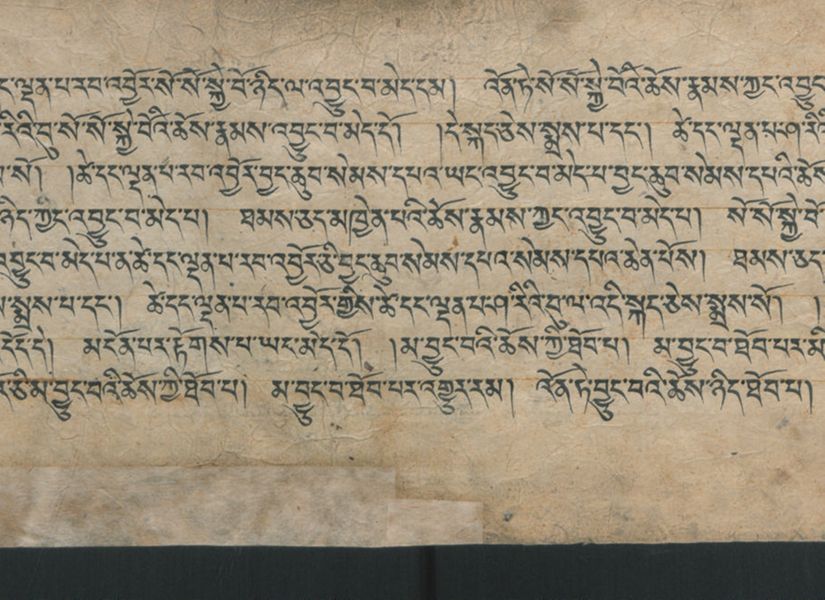 ལྡན་པ་རབ་འབྱོར་སོ་སོ་སྐྱེ་བོ་ཉིད་ལ་འབྱུང་བ་མེད་དམ། འོན་ཏེ་སོ་སོ་སྐྱེ་བོའི་ཆོས་རྣམས་ཀྱང་འབྱུང
རིའི་བུ་སོ་སོ་སྐྱེ་བོའི་ཆོས་རྣམས་འབྱུང་བ་མེད་དོ། །དེ་སྐད་ཅེས་སྨྲས་པ་དང་། ཚེ་དང་ལྡན་པ་ཤ་རིའི
སོ། །ཚེ་དང་ལྡན་པ་རབ་འབྱོར་བྱང་ཆུབ་སེམས་དཔའ་ཡང་འབྱུང་བ་མེད་པ་བྱང་ཆུབ་སེམས་དཔའི་ཆོས
ཉིད་ཀྱང་འབྱུང་བ་མེད་པ། ཐམས་ཅད་མཁྱེན་པའི་ཆོས་རྣམས་ཀྱང་འབྱུང་བ་མེད་པ། སོ་སོ་སྐྱེ་བོ
འབྱུང་བ་མེད་པ་ན་ཚེ་དང་ལྡན་པ་རབ་འབྱོར་ཅི་བྱང་ཆུབ་སེམས་དཔའ་སེམས་དཔའ་ཆེན་པོས། ཐམས་ཅད
སྨྲས་པ་དང་། ཚེ་དང་ལྡན་པ་རབ་འབྱོར་གྱིས་ཚེ་དང་ལྡན་པ་ཤ་རིའི་བུ་ལ་འདི་སྐད་ཅེས་སྨྲས་སོ། །
མངོན་པར་རྟོགས་པ་ཡང་མེད་དོ། །མ་བྱུང་བའི་ཆོས་ཀྱི་ཐོབ་པ། མ་བྱུང་བ་ཐོབ་པར་མི
ཅི་མ་བྱུང་བའི་ཆོས་ཀྱི་ཐོབ་པ། མ་བྱུང་བ་ཐོབ་པར་འགྱུར་རམ། འོན་ཏེ་བྱུང་བའི་ཆོས་ཉིད་ཐོབ་པ།